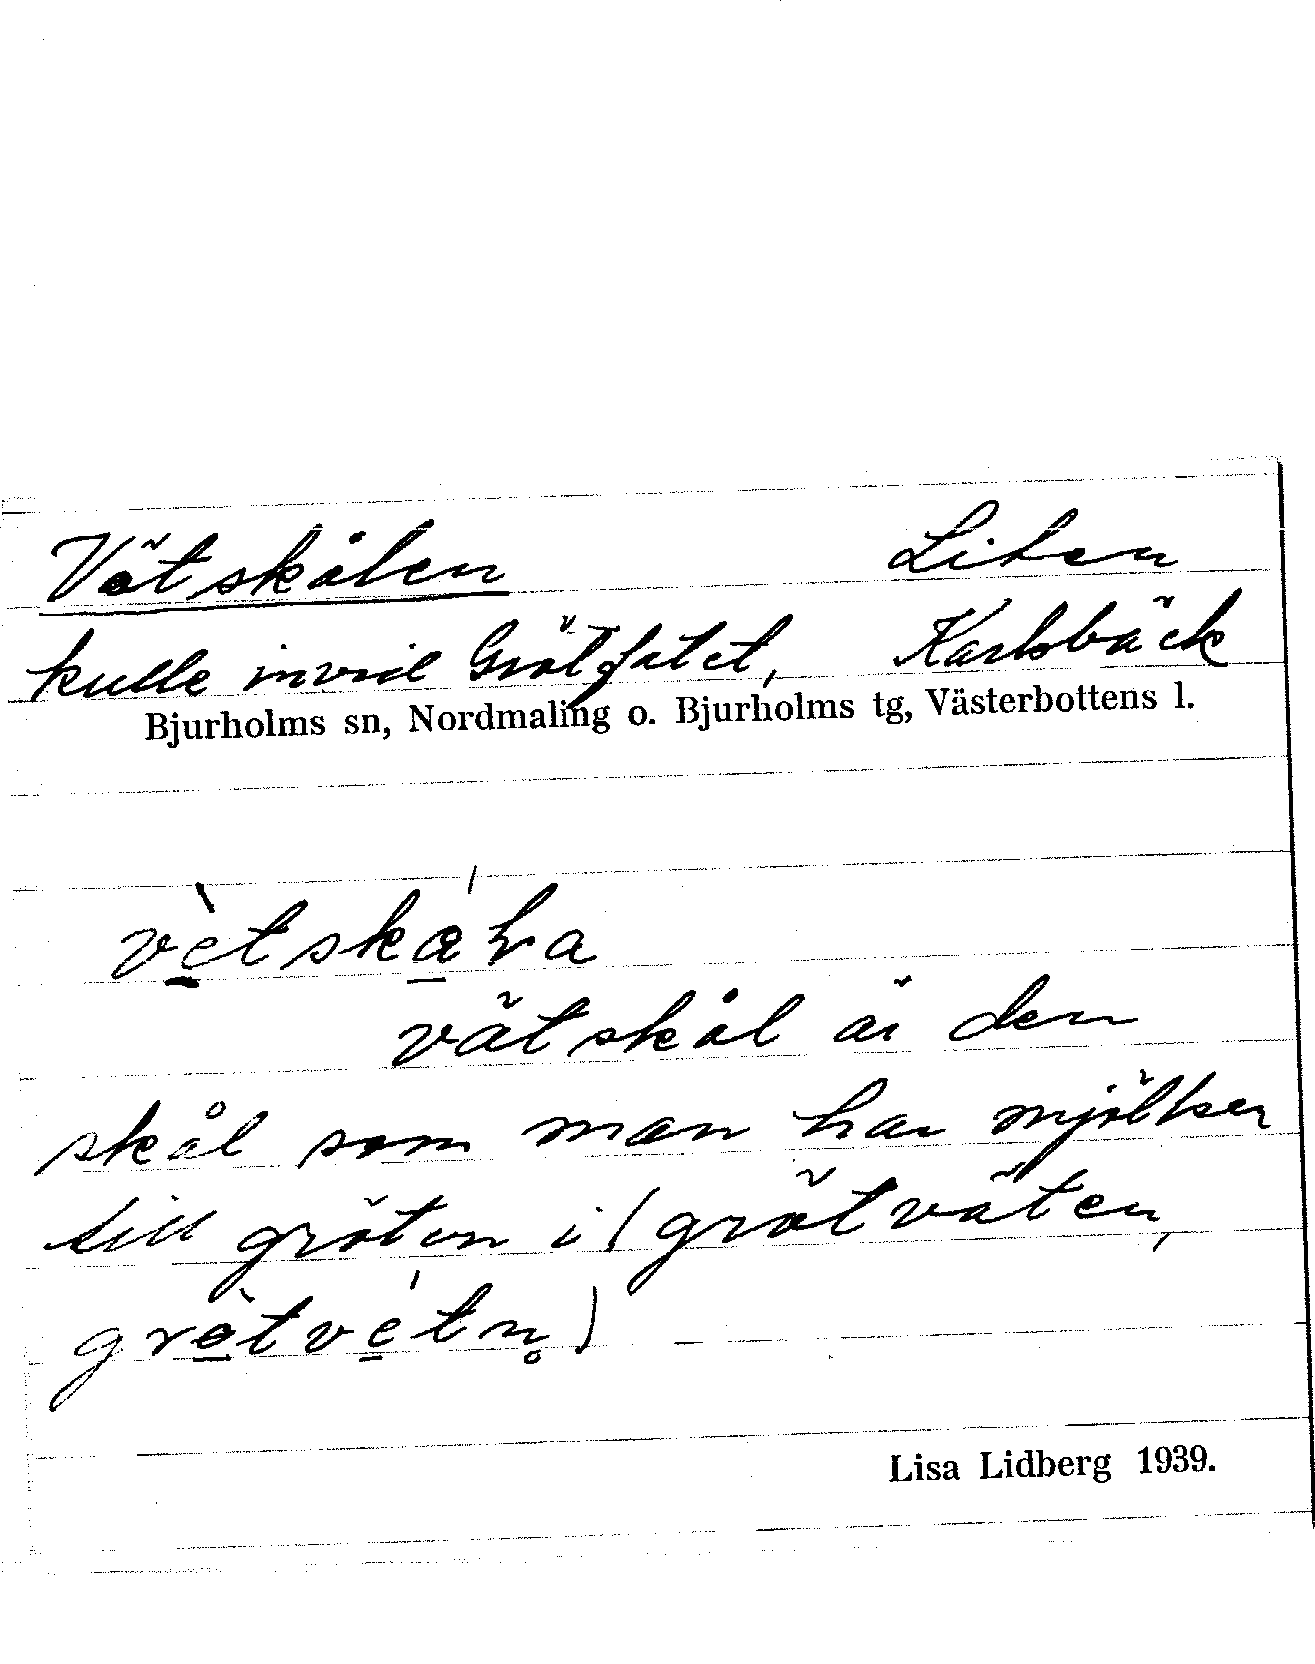 Vätskålen Liten
kulle invid Grötfatet, Karlsbäck
Bjurholms sn, Nordmaling o. Bjurholms tg, Västerbottens l.
vètskáɫa
vätskål är den
skål som man har mjölken
till gröten i (grötväten,
grètvétn̥)
Lisa Lidberg 1939.